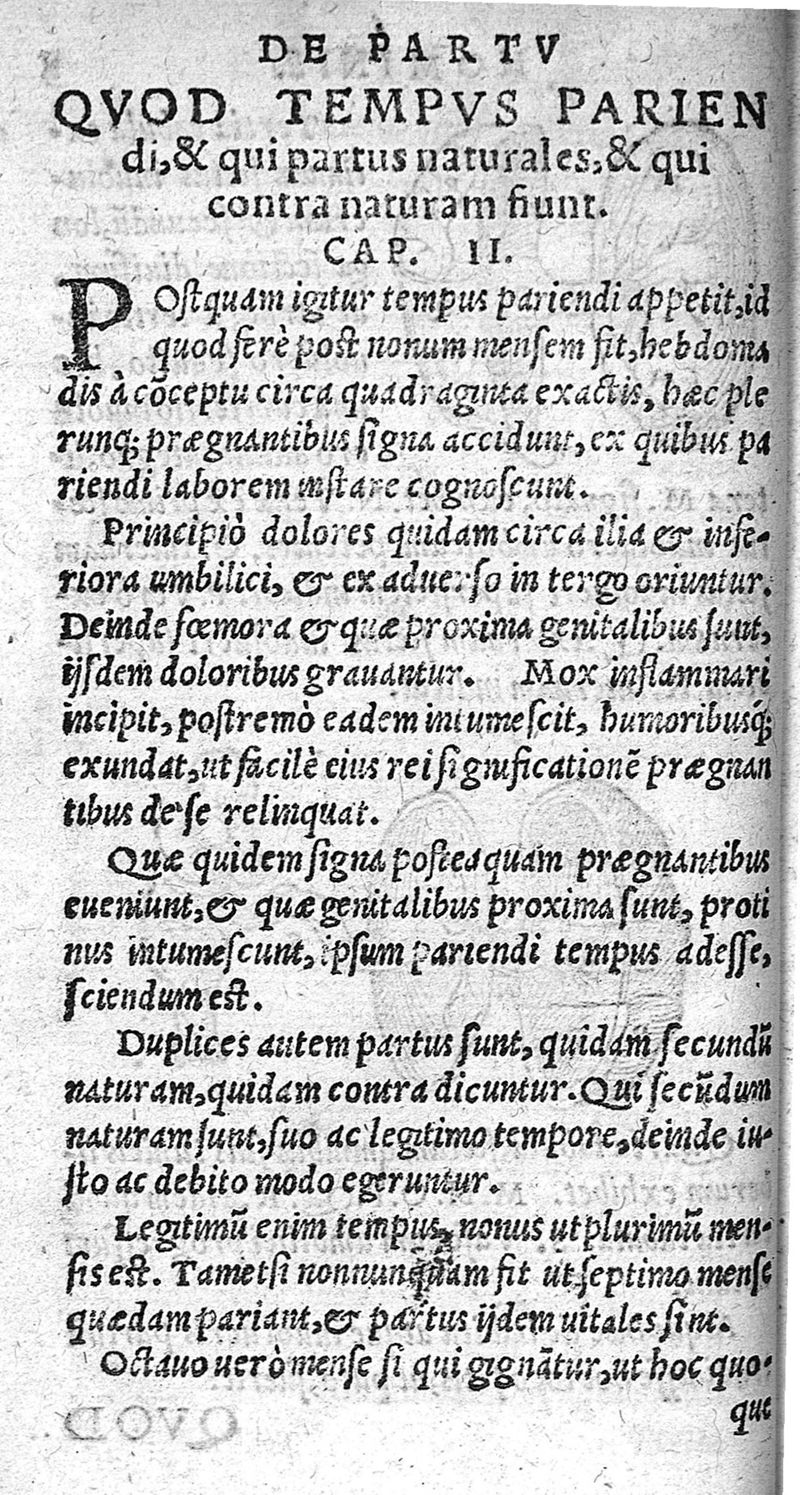 DE PARTV
QVOD TEMPVS PARIEN
di, & qui partus naturales, & qui
contra naturam fiunt.
CAP. II.
POstquam igitur tempus pariendi appetit, id
quod ferè post nonum mensem fit, hebdoma
dis à cōceptu circa quadraginta exactis, hæc ple
runq; prægnantibus signa accidunt, ex quibus pa
riendi laborem instare cognoscunt.
Principiò dolores quidam circa ilia & infe-
riora umbilici, & ex aduerso in tergo oriuntur.
Deinde fœmora & quæ proxima genitalibus sunt,
ijsdem doloribus grauantur. Mox inflammari
incipit, postremò eadem intumescit, humoribusq́;
exundat, ut facilè eius rei significationē prægnan
tibus de se relinquat.
Quæ quidem signa posteaquam prægnantibus
eueniunt, & quæ genitalibus proxima sunt, proti
nus intumescunt, ipsum pariendi tempus adesse,
sciendum est.
Duplices autem partus sunt, quidam secundū
naturam, quidam contra dicuntur. Qui secūdum
naturam sunt, suo ac legitimo tempore, deinde iu-
sto ac debito modo egeruntur.
Legitimū enim tempus, nonus ut plurimū men-
sis est. Tametsi nonnunquam fit ut septimo mense
quædam pariant, & partus ijdem uitales sint.
Octauo uerò mense si qui gignātur, ut hoc quo-
que